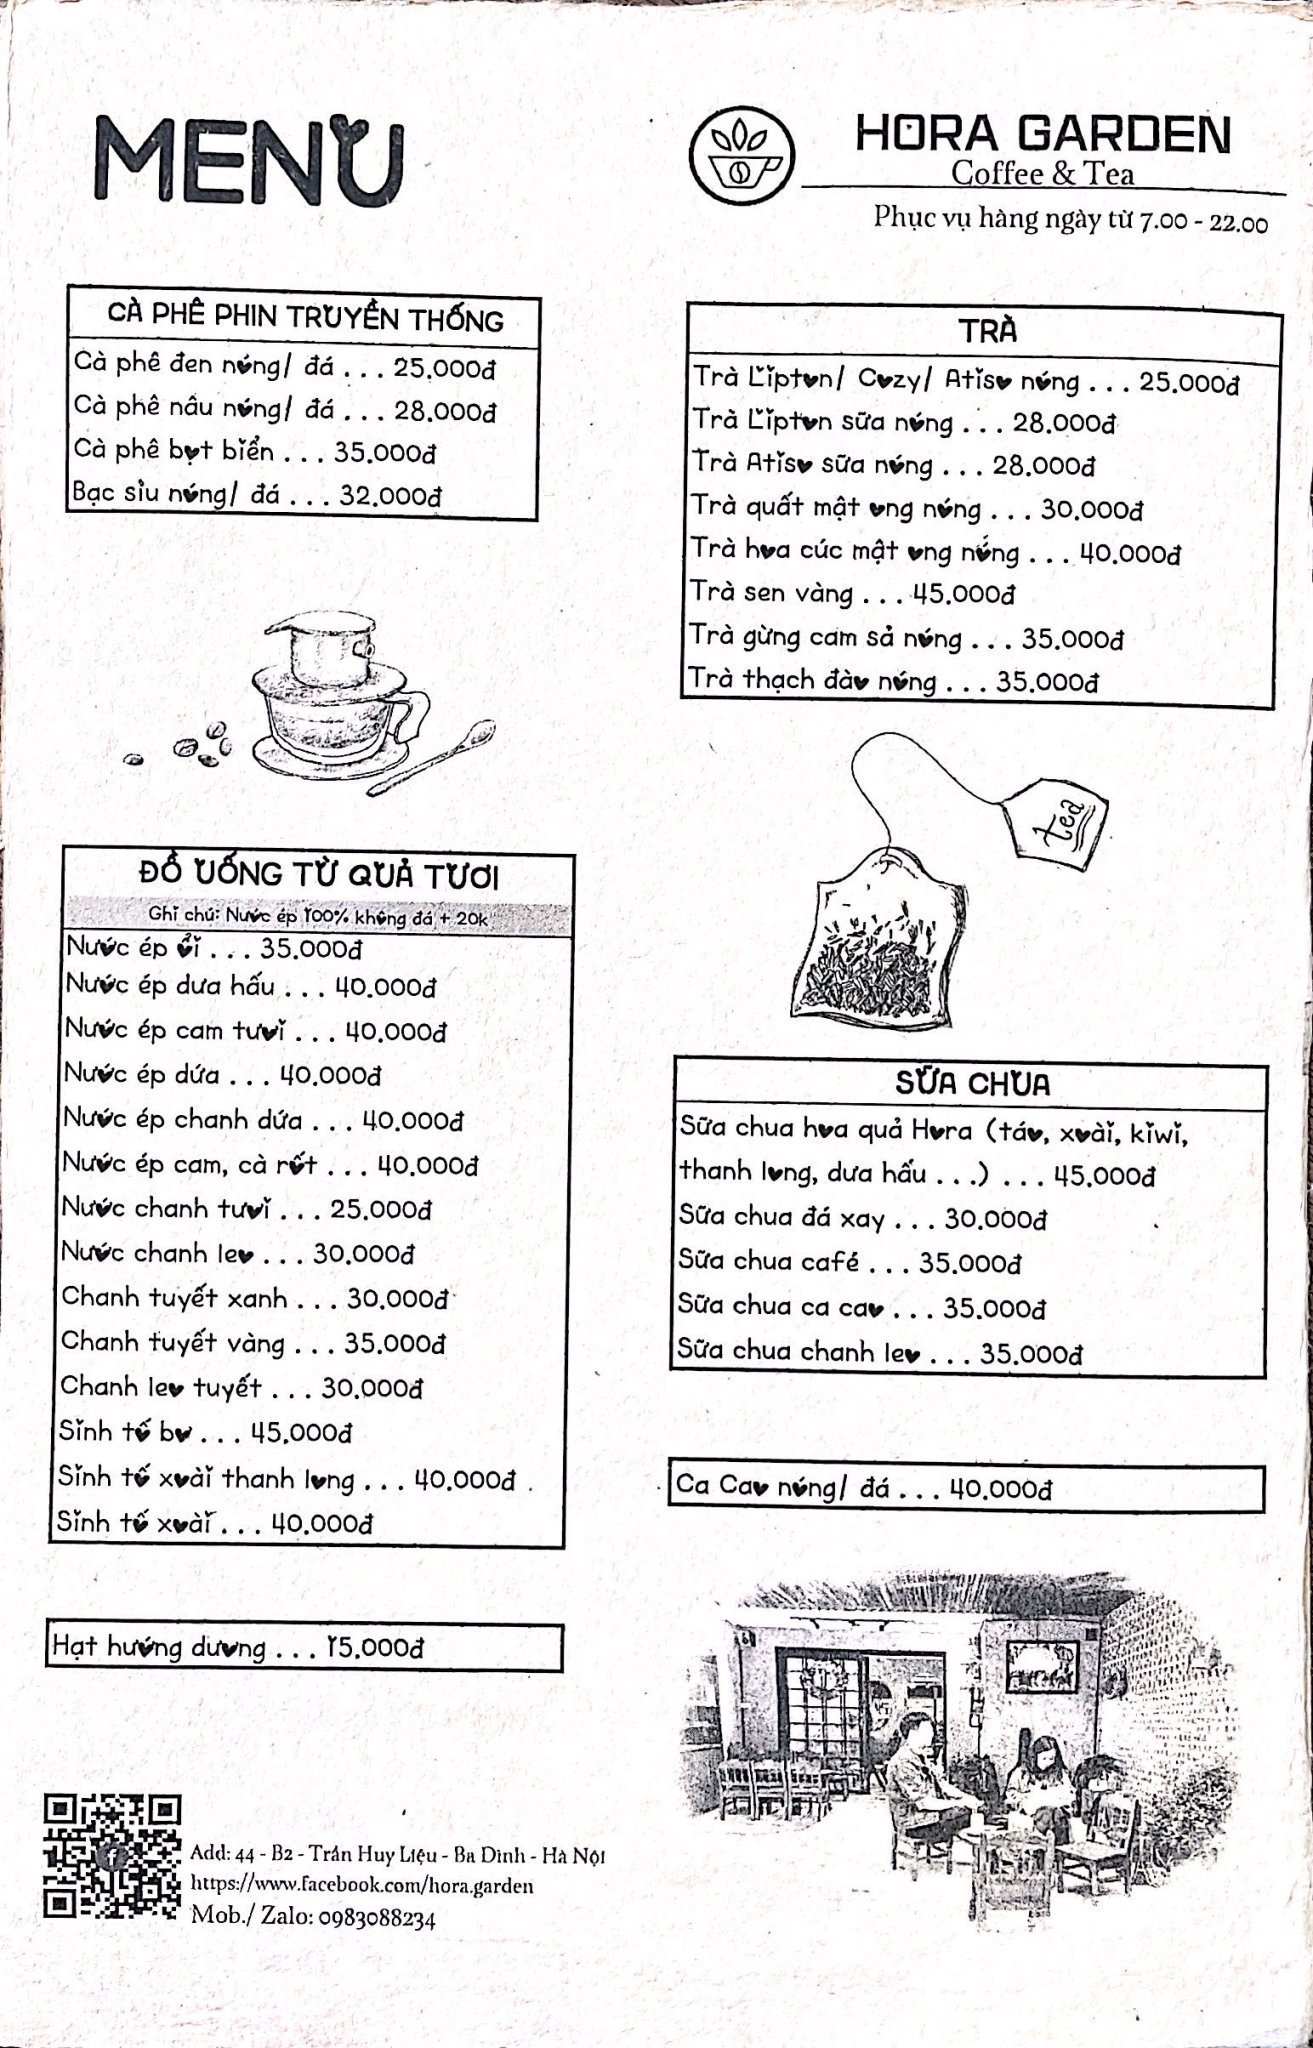 MENU
HORA GARDEN
Coffee & Tea
Phục vụ hàng ngày từ 7.00 - 22.00
CÀ PHÊ PHIN TRUYỀN THỐNG
Cà phê đen nóng/ đá . . . 25.000đ
Cà phê nâu nóng/ đá . . . 28.000đ
Cà phê bọt biển . . . 35.000đ
Bạc sỉu nóng/ đá . . . 32.000đ
ĐỒ UỐNG TỪ QUẢ TƯƠI
Ghi chú: Nước ép 100% không đá + 20k
Nước ép ổi . . . 35.000đ
Nước ép dưa hấu . . . 40.000đ
Nước ép cam tươi . . . 40.000đ
Nước ép dứa . . . 40.000đ
Nước ép chanh dứa . . . 40.000đ
Nước ép cam, cà rốt . . . 40.000đ
Nước chanh tươi . . . 25.000đ
Nước chanh leo . . . 30.000đ
Chanh tuyết xanh . . . 30.000đ
Chanh tuyết vàng . . . 35.000đ
Chanh leo tuyết . . . 30.000đ
Sinh tố bơ . . . 45.000đ
Sinh tố xoài thanh long . . . 40.000đ
Sinh tố xoài . . . 40.000đ
Hạt hướng dương . . . 15.000đ
TRÀ
Trà Lipton/ Cozy/ Atiso nóng . . . 25.000đ
Trà Lipton sữa nóng . . . 28.000đ
Trà Atiso sữa nóng . . . 28.000đ
Trà quất mật ong nóng . . . 30.000đ
Trà hoa cúc mật ong nống . . . 40.000đ
Trà sen vàng . . . 45.000đ
Trà gừng cam sả nóng . . . 35.000đ
Trà thạch đào nóng . . . 35.000đ
tea
SỮA CHUA
Sữa chua hoa quả Hora (táo, xoài, kiwi,
thanh long, dưa hấu . . .) . . . 45.000đ
Sữa chua đá xay . . . 30.000đ
Sữa chua café . . . 35.000đ
Sữa chua ca cao . . . 35.000đ
Sữa chua chanh leo . . . 35.000đ
Ca Cao nóng/ đá . . . 40.000đ
Add: 44 - B2 - Trần Huy Liệu - Ba Đình - Hà Nội
https://www.facebook.com/hora.garden
Mob./ Zalo: 0983088234